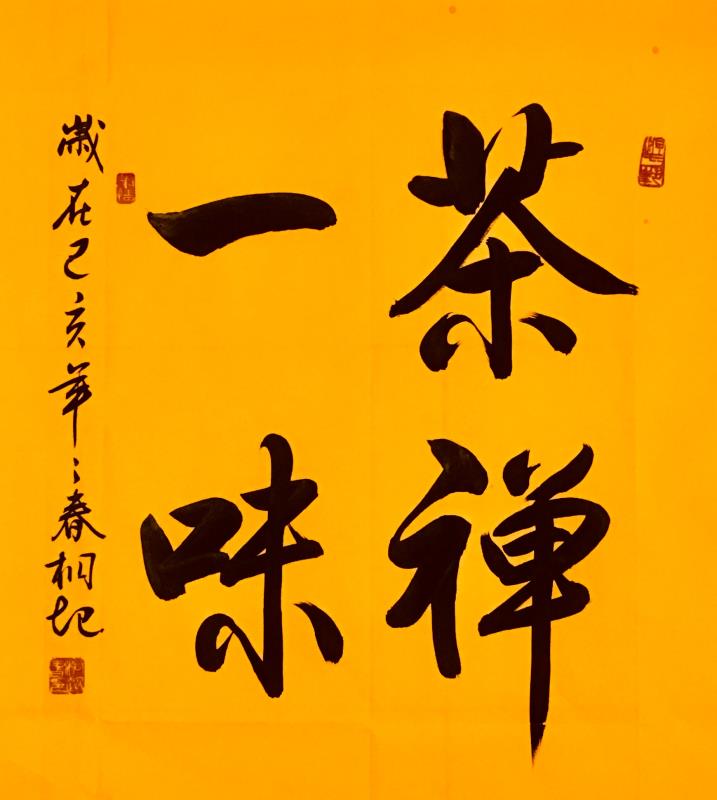 茶禅
一味
歲在己亥年之春桐记